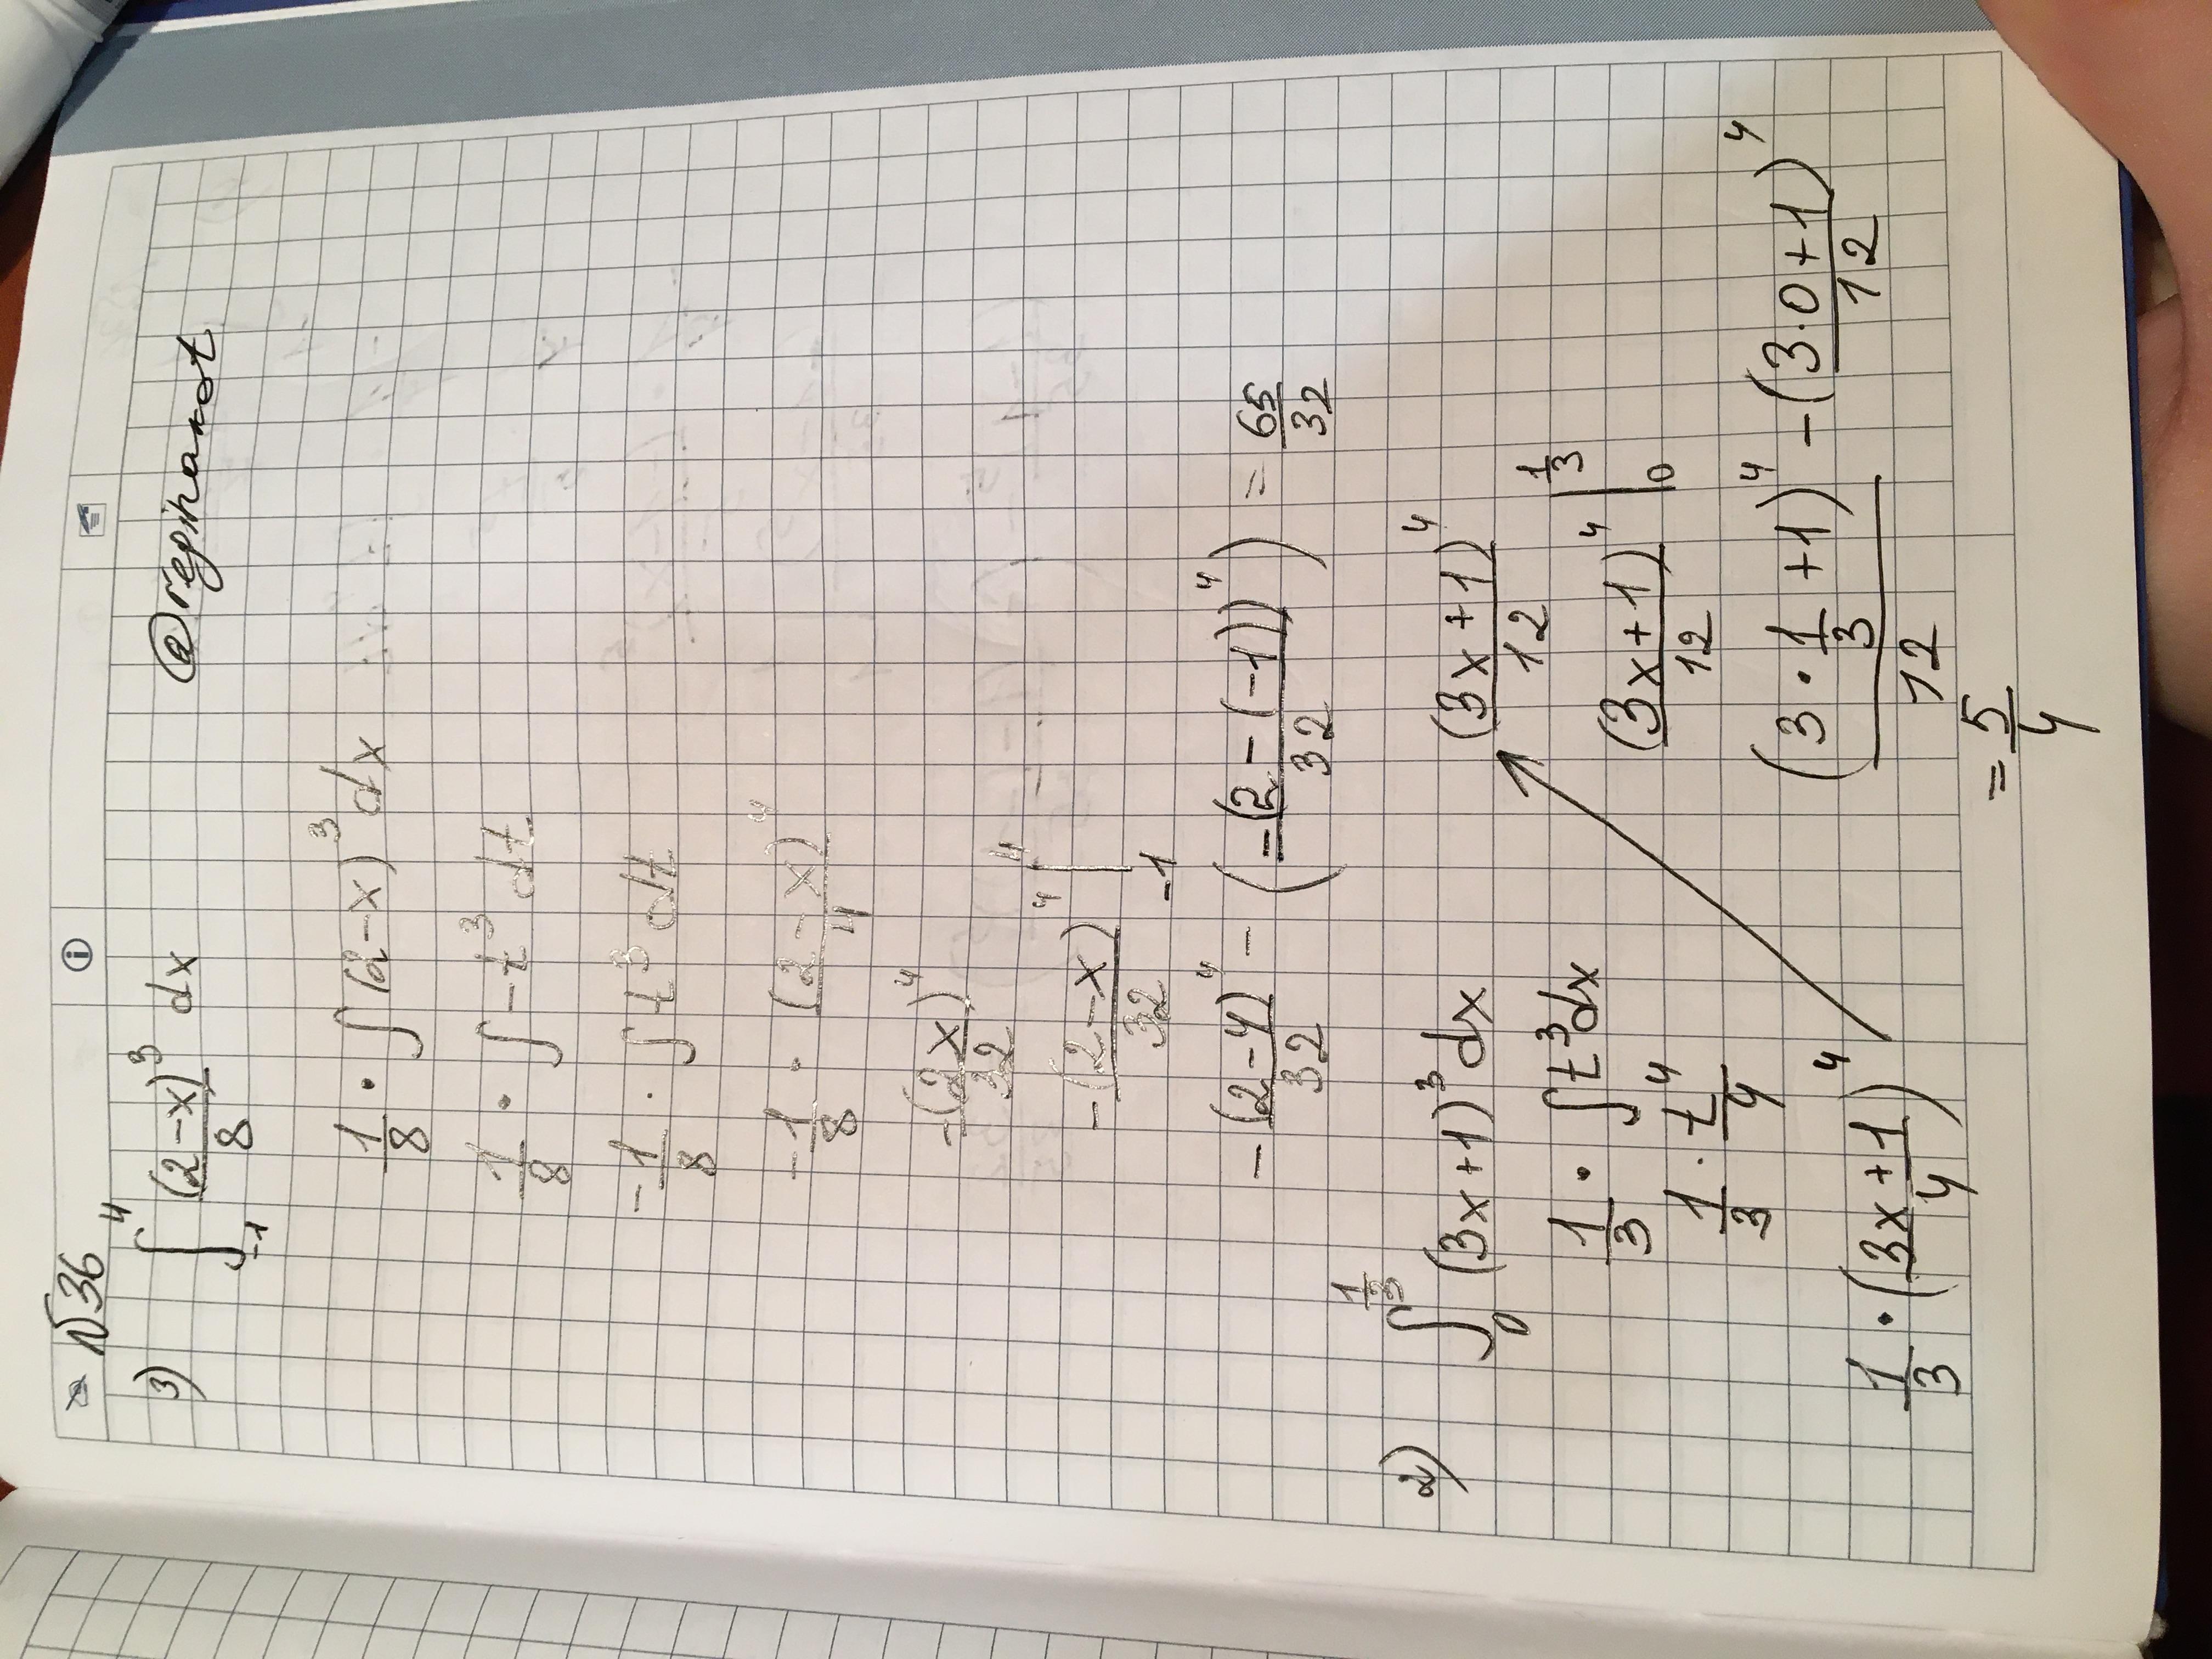 №36
@reginanot
3) ∫₋₁⁴ (2-x)³/8 dx
1/8 · ∫(2-x)³ dx
1/8 · ∫-t³ dt
-1/8 · ∫t³ dt
-1/8 · (2-x)⁴/4
-(2-x)⁴/32
-(2-x)⁴/32 |₋₁⁴
-(2-4)⁴/32 - (-(2-(-1))⁴/32) = 65/32
2) ∫₀^(1/3) (3x+1)³ dx
1/3 · ∫t³dx
1/3 · t⁴/4
1/3 · (3x+1)⁴/4
(3x+1)⁴/12
(3x+1)⁴/12 |₀^(1/3)
(3·1/3+1)⁴/12 - (3·0+1)⁴/12
= 5/4